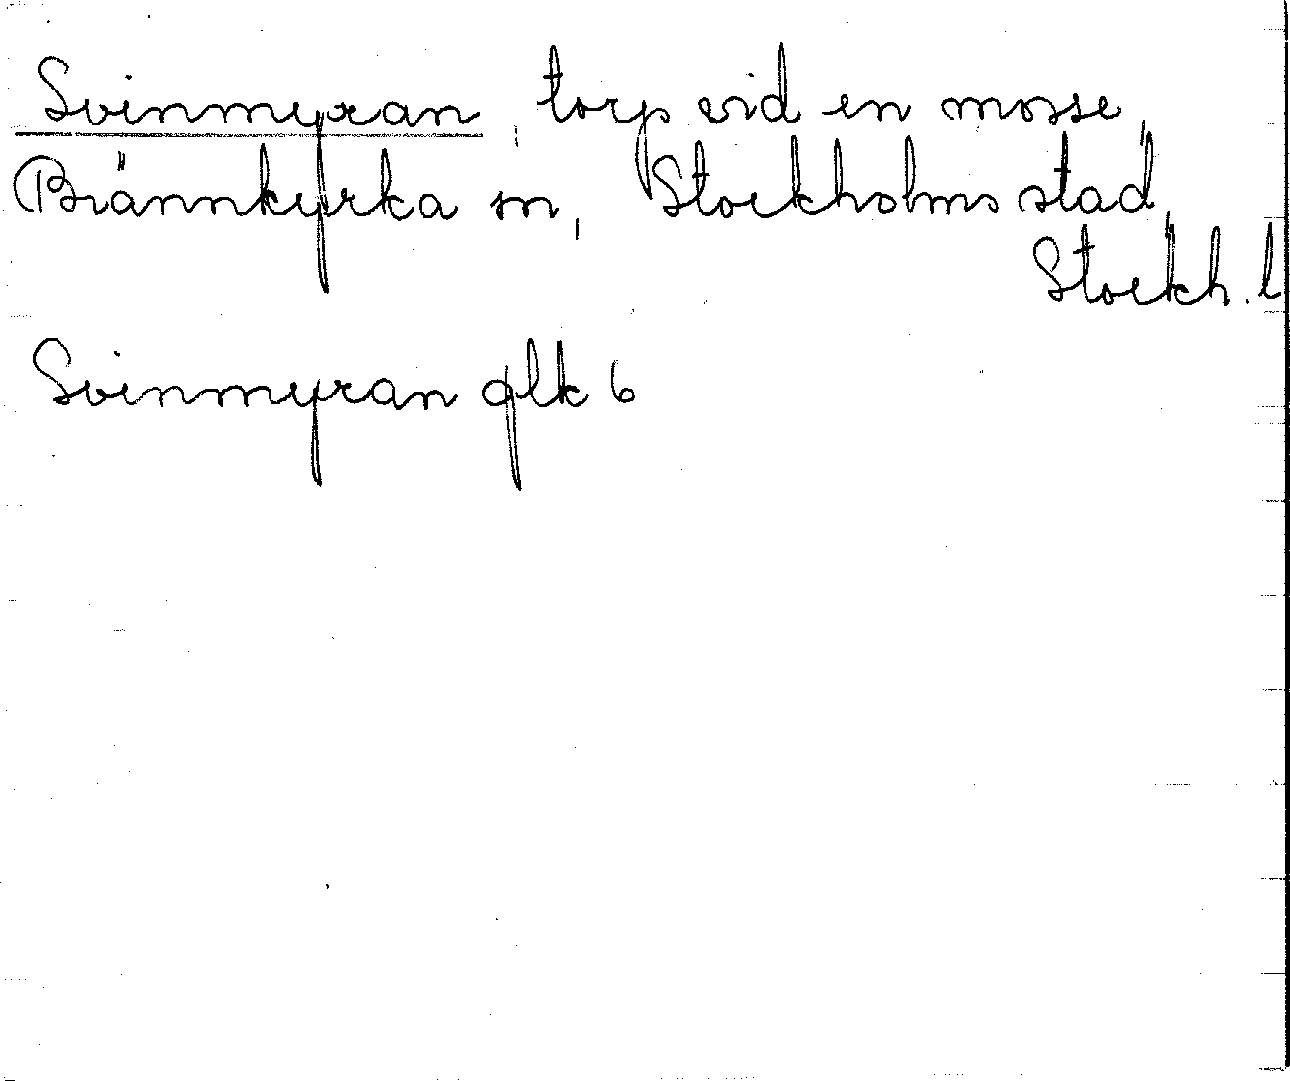 Svinmyran, torp vid en mosse,
Brännkyrka sn, Stockholms stad,
Stockh. l
Svinmyran glk 6